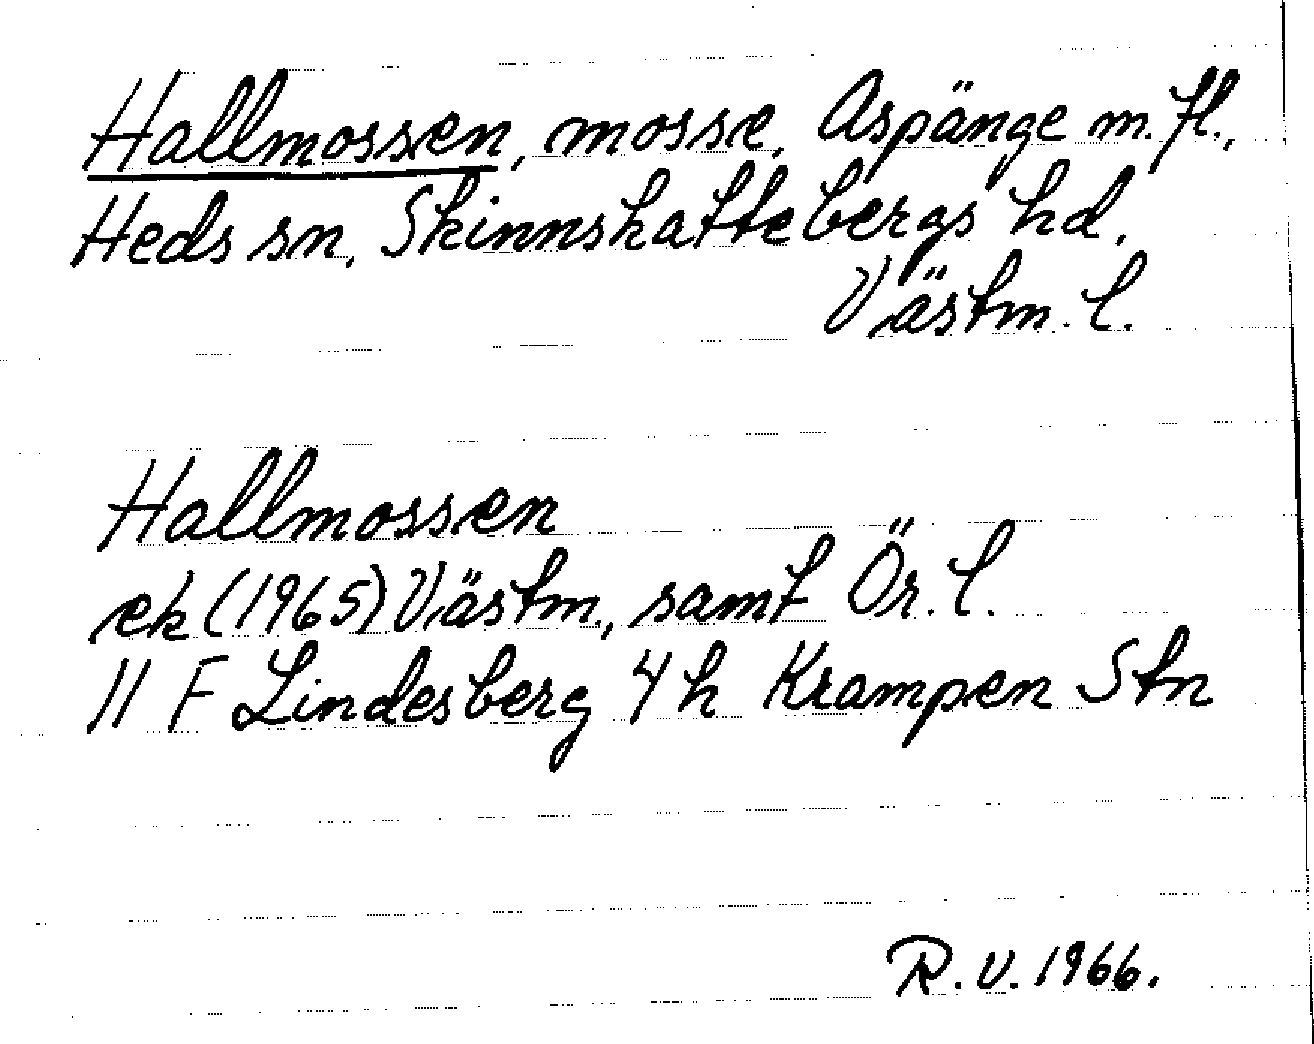 Hallmossen, mosse, Aspänge m.fl.,
Heds sn, Skinnskattebergs hd,
Västm. l.
Hallmossen
ek (1965) Västm., samt Ör. l.
11 F Lindesberg 4 h Krampen Stn
R.V. 1966.